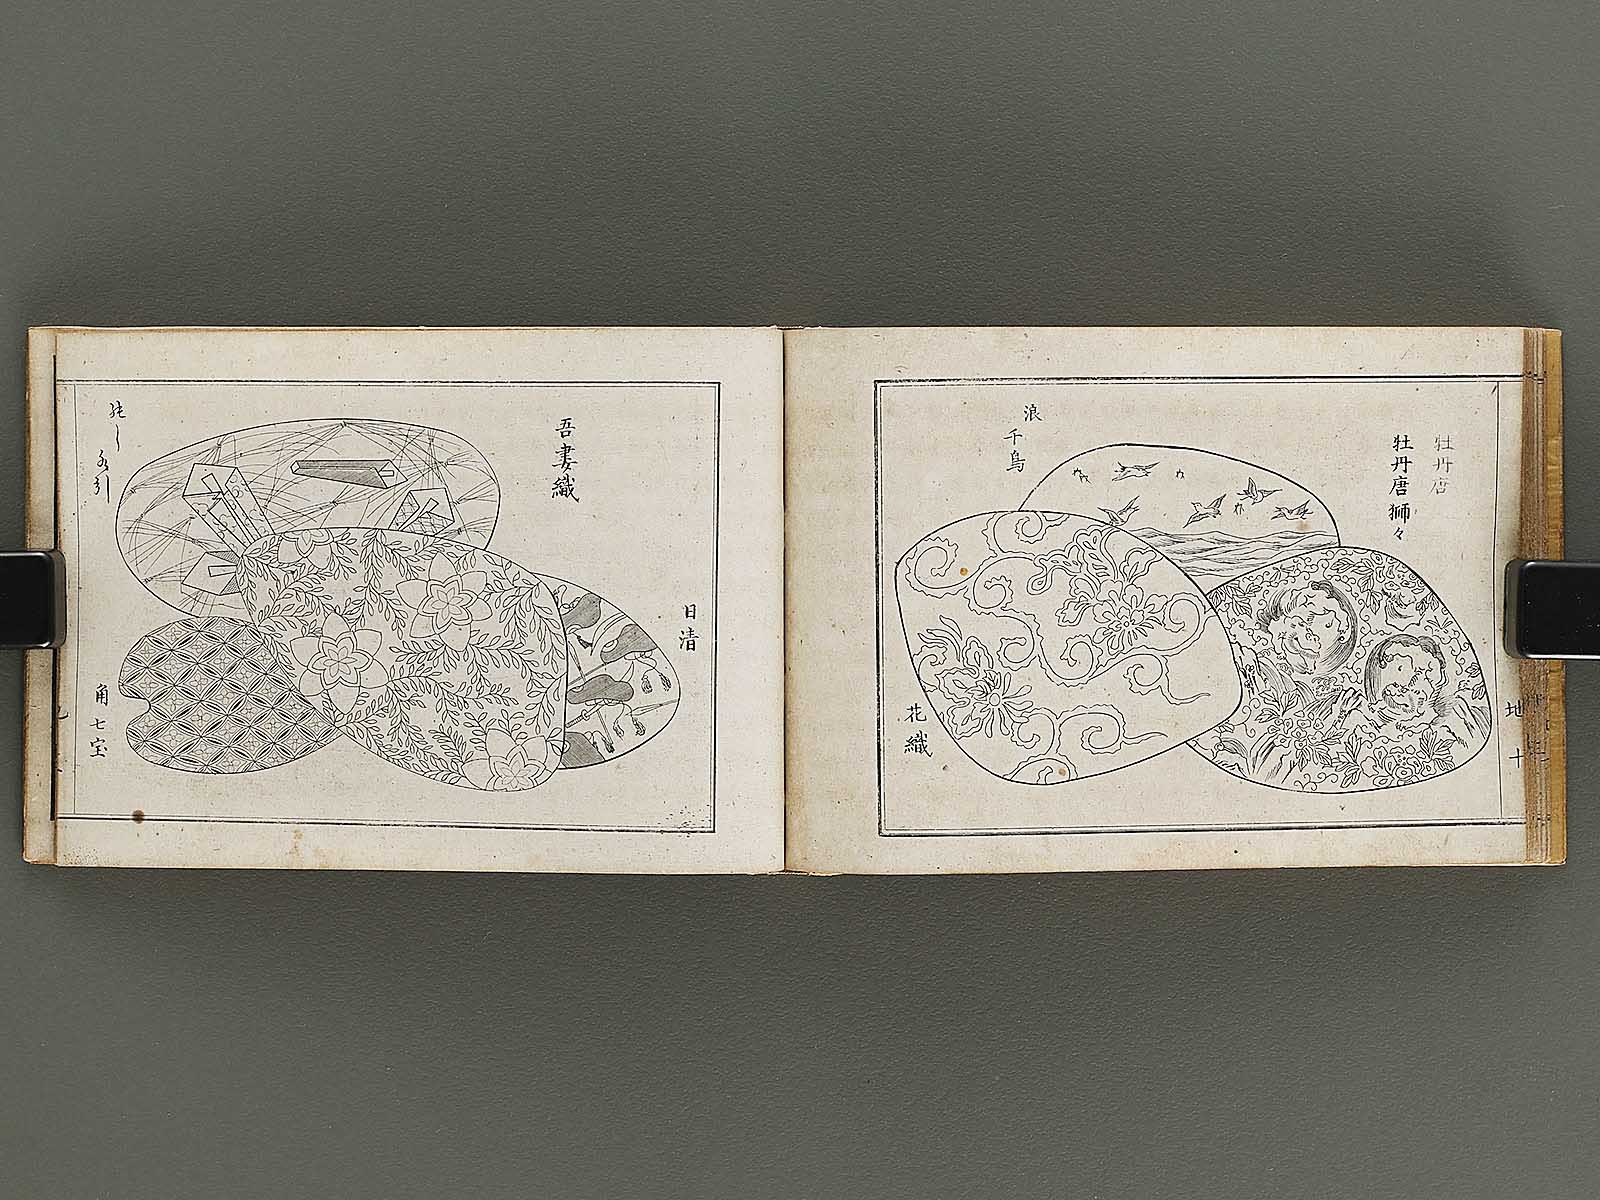 牡丹唐
牡丹唐獅々
浪千鳥
花織
地十
吾妻織
日清
のし
水引
角七宝